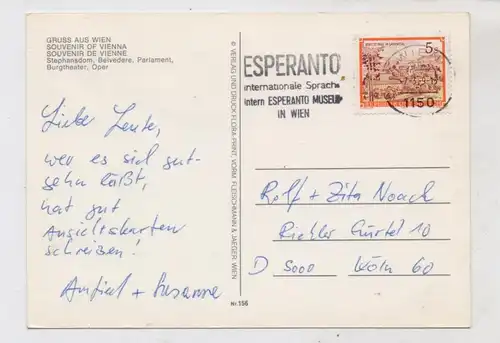 GRUSS AUS WIEN
SOUVENIR OF VIENNA
SOUVENIR DE VIENNE
Stephansdom, Belvedere, Parlament,
Burgtheater, Oper
Liebe Leute,
wer es sich gut-
gehn läßt,
hat gut
Ansichtskarten
schreiben!
+ Susanna
© VERLAG UND DRUCK FLORA-PRINT, VORM. FLEISCHMANN & JAEGER, WIEN
Nr. 156
ESPERANTO
internationale Sprach
Intern ESPERANTO MUSEU
IN WIEN
5
1150
Rolf + Zita Noack
Riehler Gürtel 10
D 5000 Köln 60